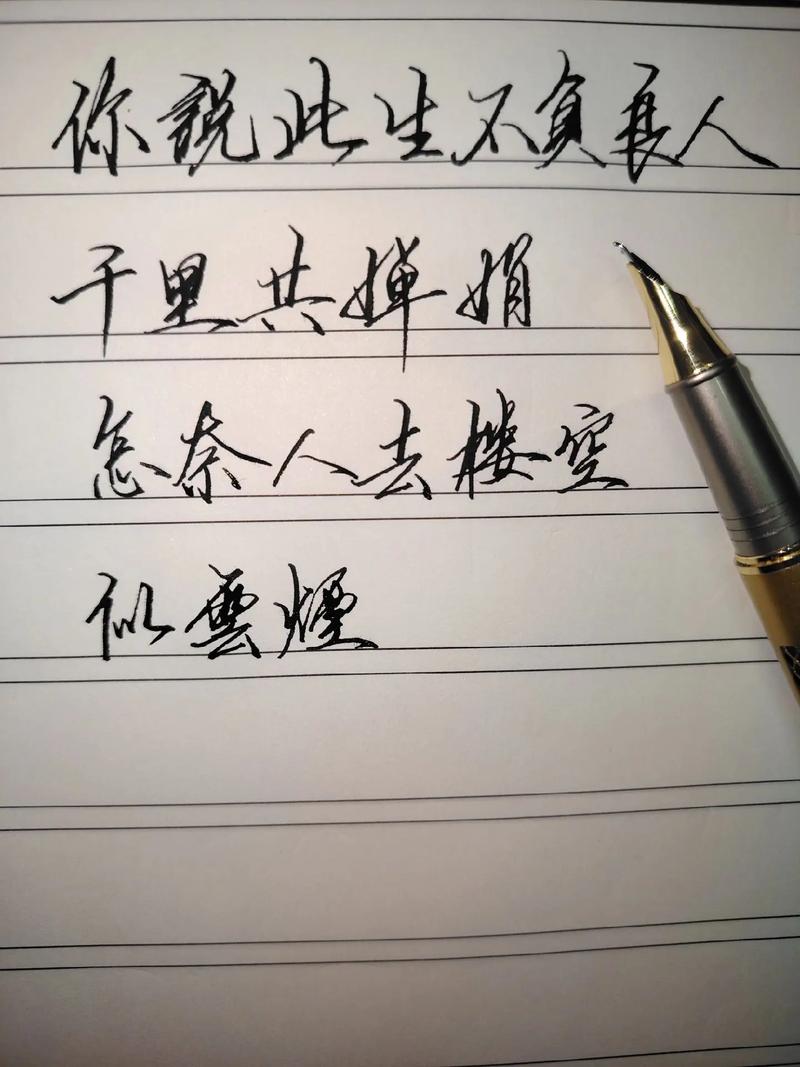 你說此生不負良人
千里共嬋娟
怎奈人去樓空
似雲煙